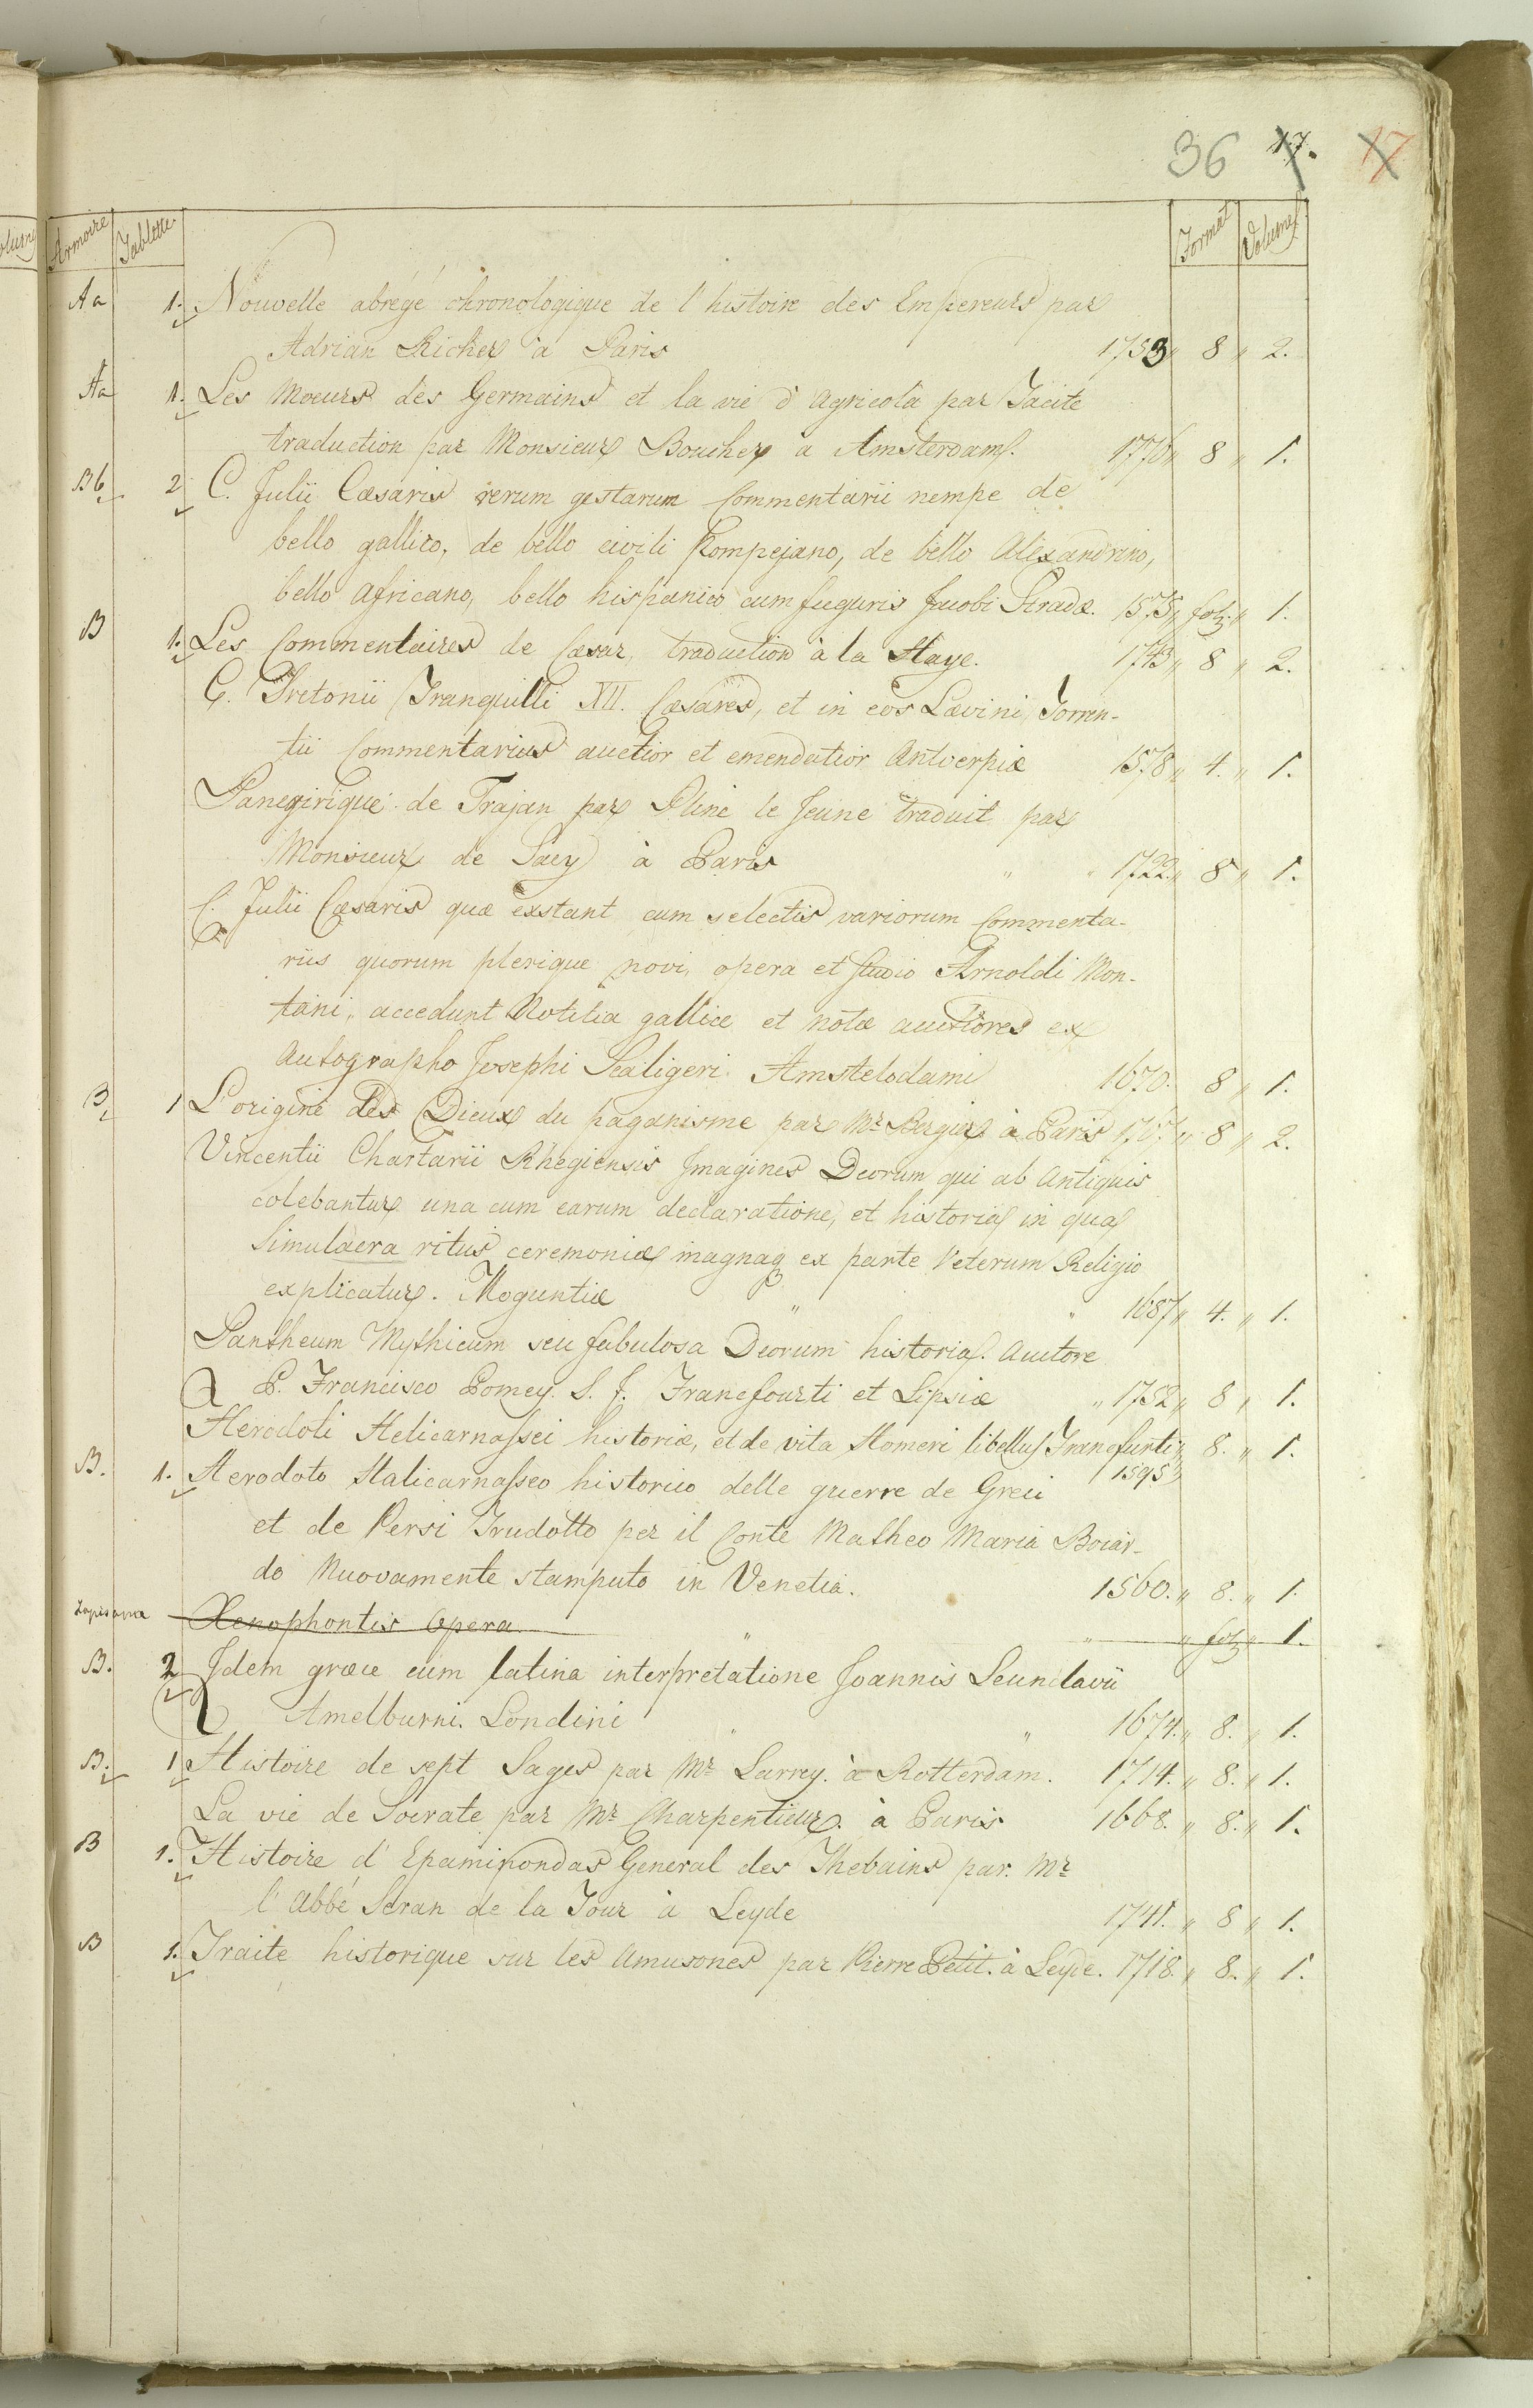 36 17. 17
Armoire Tablette Format Volumes
Aa 1. Nouvelle abregé chronologique de l'histoire des Empereurs par
Adrian Richer a Paris 1753 " 8 " 2.
Aa 1. Les Moeurs des Germains et la vie d'Agricola par Tacite
traduction par Monsieur Boucher a Amsterdam. 1776 " 8 " 1.
Bb 2 C. Julii Cæsaris rerum gestarum Commentarii nempe de
bello gallico, de bello civili Pompejano, de bello Alexandrino,
bello Africano, bello hispanico cum figuris Jacobi Stradæ. 1575 " fol. " 1.
B 1. Les Commentaires de Cæsar traduction à la Haye. 1743 " 8 " 2.
G. Tretonii Tranquilli XII. Cæsares, et in eos Lævini Torren-
tii Commentarius auctior et emendatior Antverpiæ 1578 " 4. " 1.
Panegirique de Trajan par Pline le Jeune traduit par
Monsieur de Sacy à Paris " " 1722 " 8 " 1.
C. Julii Cæsaris quæ exstant cum selectis variorum Commenta-
riis quorum plerique novi, opera et studio Arnoldi Mon-
tani, accedunt Notitia gallice et notæ auctiores ex
Autographo Josephi Scaligeri Amstelodami 1670. 8 " 1.
B 1 L'origine des Dieux du paganisme par Mr Bergier à Paris 1767 " 8 " 2.
Vincentii Chartarii Rhegiensis Imagines Deorum qui ab Antiquis
colebantur una cum earum declaratione, et historia in qua
Simulacra ritus ceremoniæ magnaq ex parte Veterum Religio
explicatur. Moguntiæ " " 1687 " 4. " 1.
Pantheum Mythicum seu fabulosa Deorum historia. Auctore
P. Francisco Pomey. S. J. Francfourti et Lipsiæ " 1752 " 8 " 1.
Herodoti Helicarnassei historiæ, et de vita Homeri libellus Francfurti " 8. " 1.
1595
B. 1. Herodoto Halicarnasseo historico delle guerre de Greci
et de Persi Trudotto per il Conte Matheo Maria Boiar-
do Nuovamente stamputo in Venetia. 1560. " 8. " 1.
Xenophontis Opera " " " fol. " 1.
B. 2 Idem græce cum latina interpretatione Joannis Leunclavii
Amelburni. Londini " " 1674. " 8. " 1.
B. 1 Histoire de sept Sages par Mr Larrey. à Rotterdam. 1714. " 8. " 1.
La vie de Socrate par Mr Charpentieur. à Paris 1668. " 8. " 1.
B 1. Histoire d'Epaminondas General des Thebains par Mr
l'Abbé Seran de la Tour à Leyde 1741. " 8 " 1.
B 1. Traite historique sur les Amusones par Pierre Petit. à Leyde. 1718. " 8. " 1.